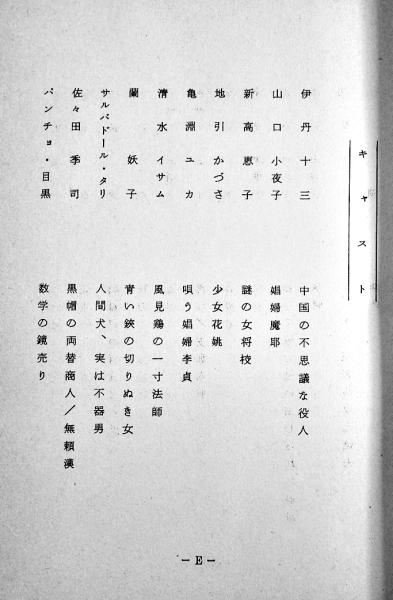 キャスト
伊丹十三　中国の不思議な役人
山口小夜子　娼婦魔耶
新高恵子　謎の女将校
地引かづさ　少女花姚
亀淵ユカ　唄う娼婦李貞
清水イサム　風見鶏の一寸法師
蘭妖子　青い鋏の切りぬき女
サルバドール・タリ　人間犬、実は不器男
佐々田季司　黒帽の両替商人／無頼漢
パンチョ・目黒　数学の鏡売り
—E—